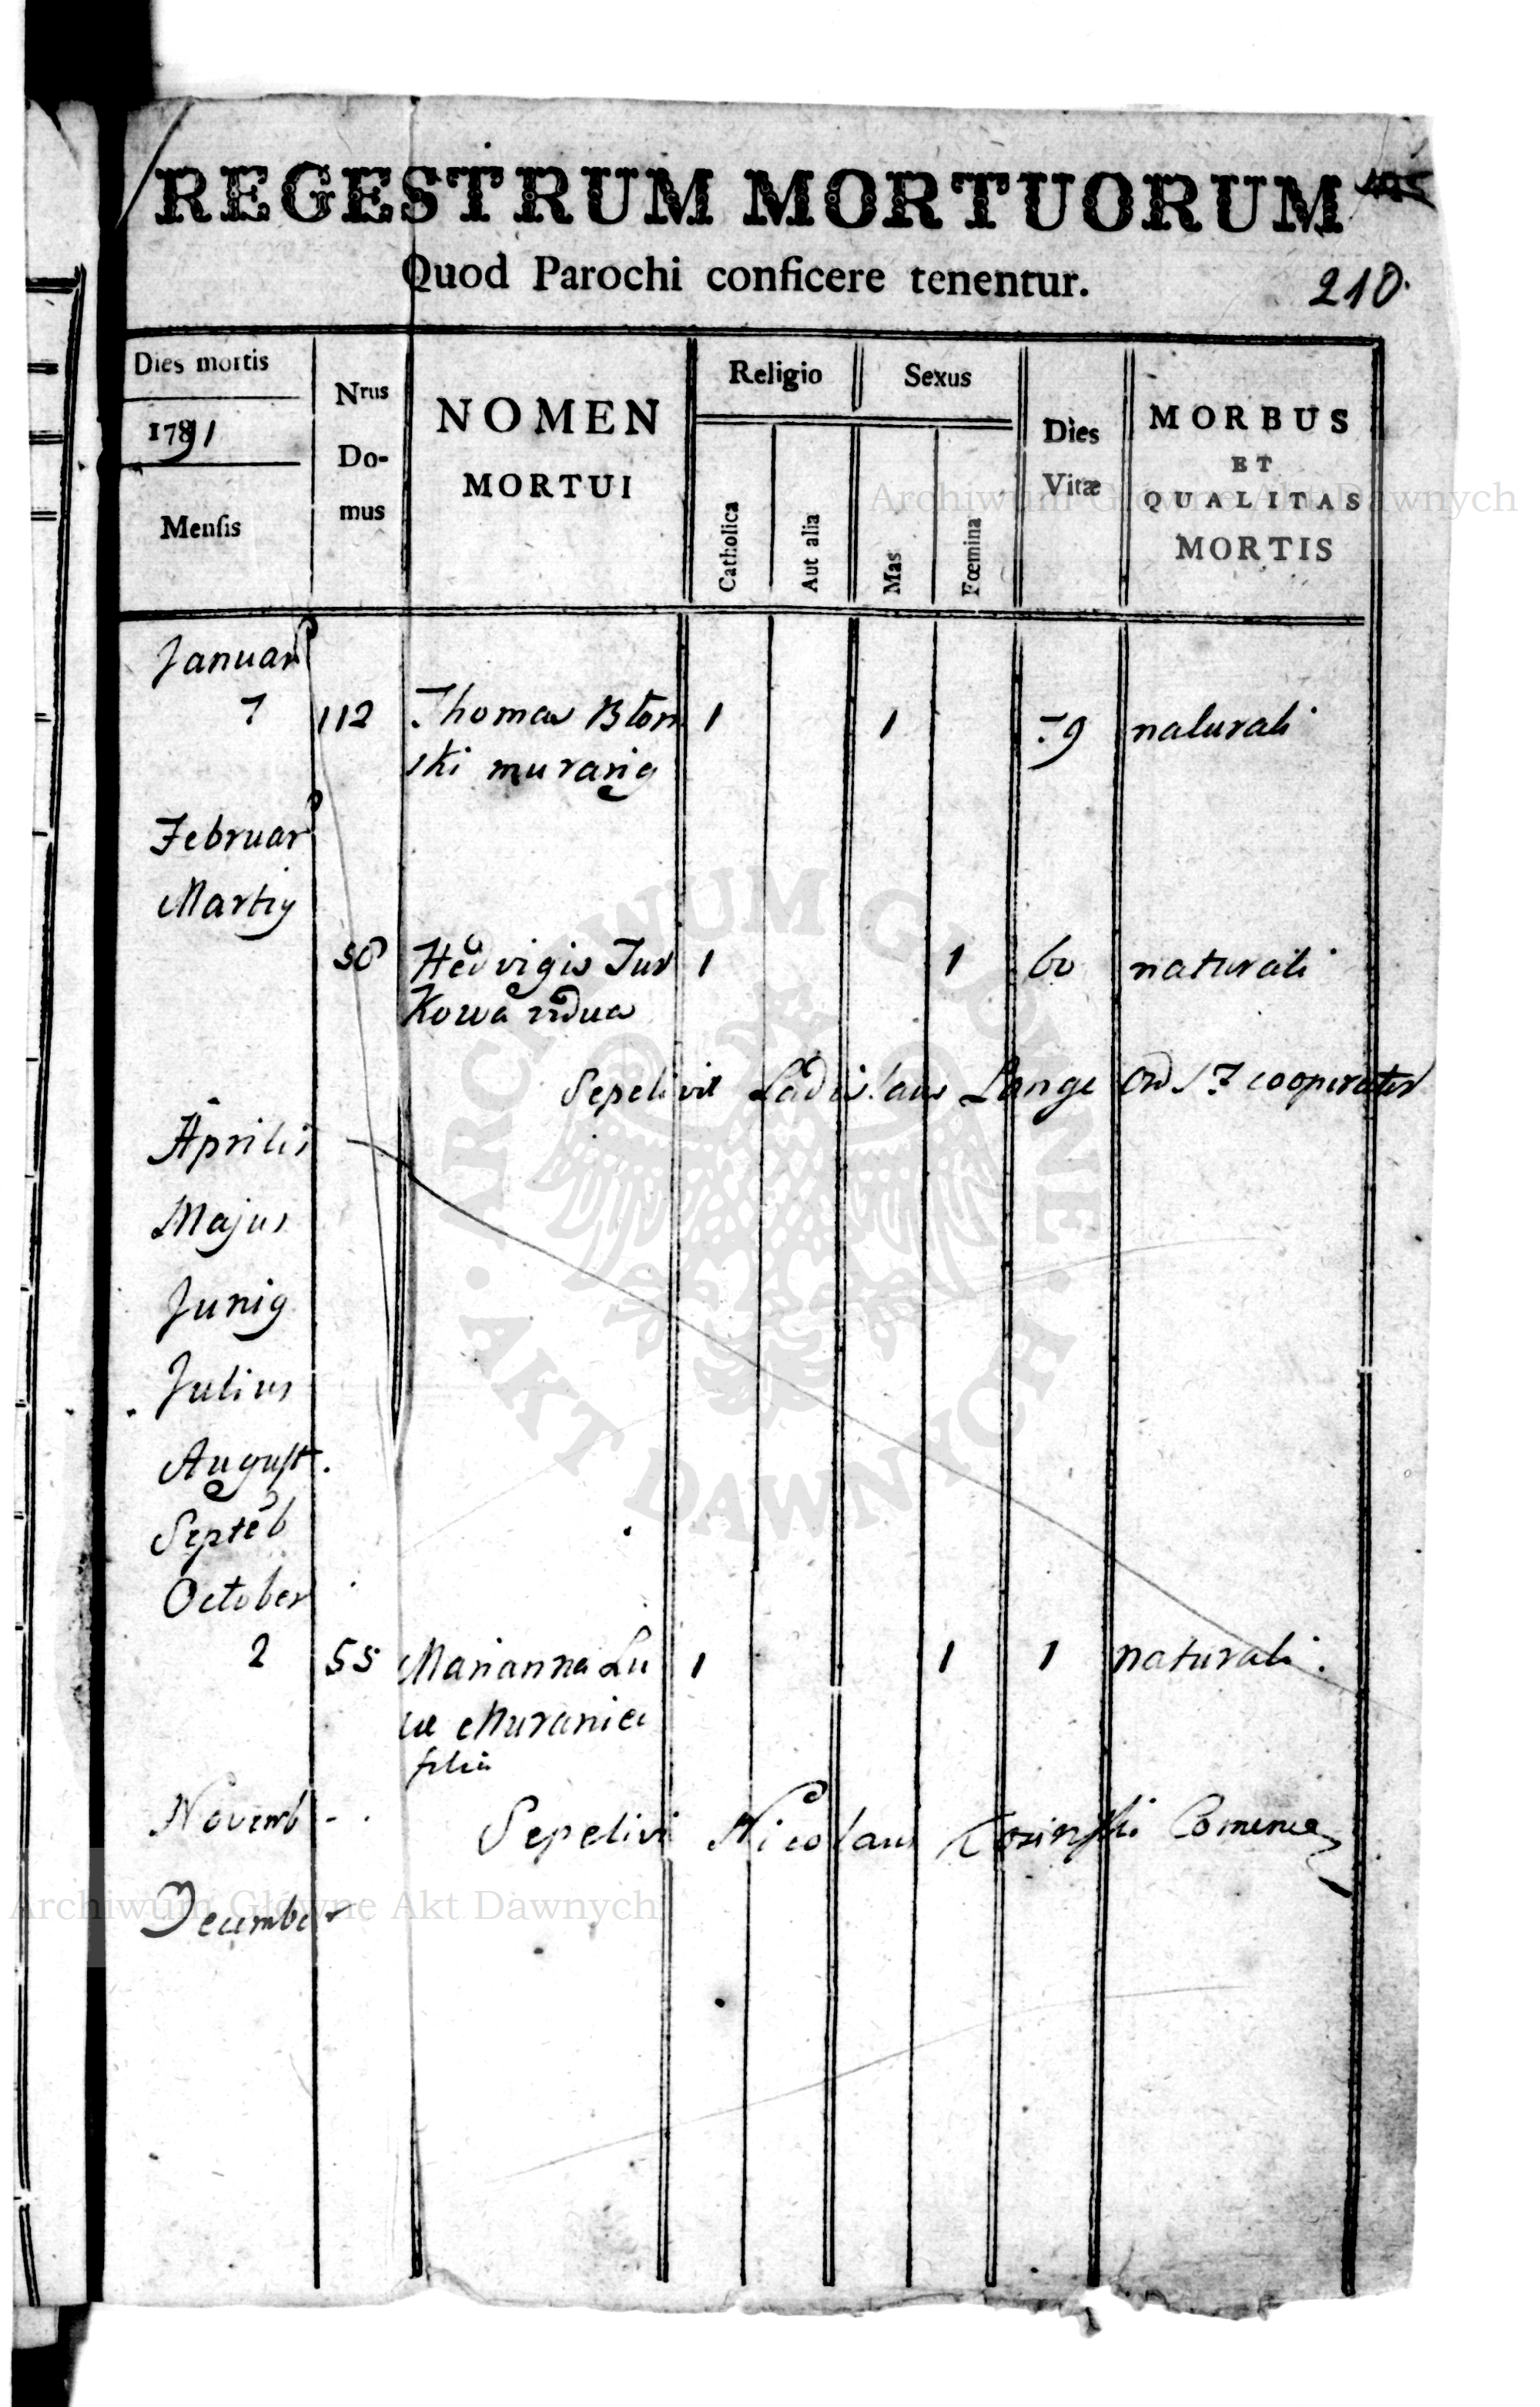 REGESTRUM MORTUORUM
Quod Parochi conficere tenentur.
210.
Dies mortis
1791
Mensis
Nrus
Do-
mus
NOMEN
MORTUI
Religio
Catholica
Aut alia
Sexus
Mas
Fœmina
Dies
Vitæ
MORBUS
ET
QUALITAS
MORTIS
Archiwum Główne Akt Dawnych
Januar
7 112 Thomas Błon 1 1 79 naturali
ski murarig
Februar
Martiy
Hedvigis Jur 1 1 60 naturali
kowa vidua
Sepelivit Ladislaus Lange Ord S F cooperator
Aprilis
Majus
Junig
Julius
August.
Septeb
October
2 55 Marianna Lu 1 1 1 naturali.
cæ Muranici
filia
Novemb - .
Sepelivi Nicolaus
December
ARCHIWUM GŁÓWNE
AKT DAWNYCH
Archiwum Główne Akt Dawnych